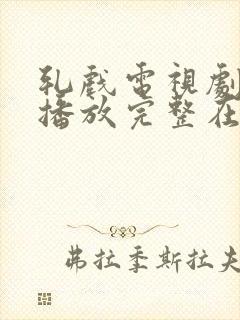 乳戲電視劇
播放完整在
弗拉季斯拉夫